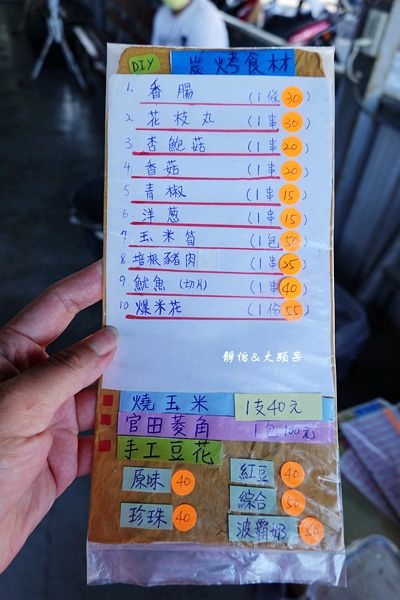 DIY 炭烤食材
1. 香腸 (1條30)
2. 花枝丸 (1串30)
3. 杏鮑菇 (1串20)
4. 香菇 (1串20)
5. 青椒 (1串15)
6. 洋蔥 (1串15)
7. 玉米筍 (1包50)
8. 培根豬肉 (1串25)
9. 魷魚(切片) (1串40)
10. 爆米花 (1份55)
靜怡&大顆呆
燒玉米 1支40元
官田菱角 1包100元
手工豆花
原味 40 紅豆 40
珍珠 40 綜合 50
波霸奶